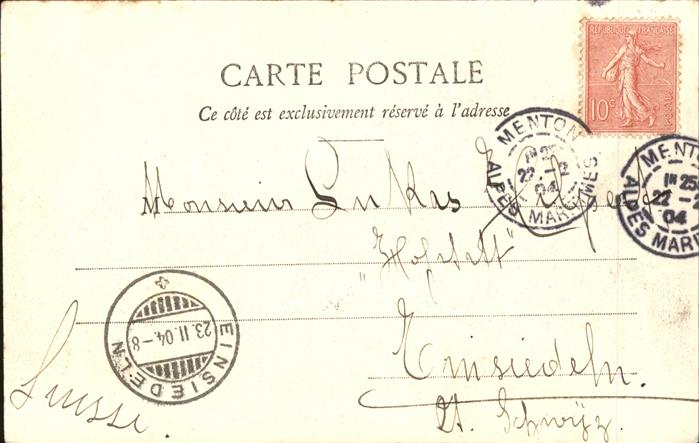 REPUBLIQUE FRANÇAISE
10c POSTES
CARTE POSTALE
Ce côté est exclusivement réservé à l'adresse
MENTON
1R 25
22 -2
04
ALPES MARITIMES
MENTON
1R 25
22 -2
04
ALPES MARITIMES
Monsieur Lukas
"Hofstatt"
Einsiedeln.
Kt. Schwyz.
EINSIEDELN
23.II.04.-8
Suisse.